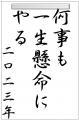 何事も
一生懸命に
やる
二〇二三年